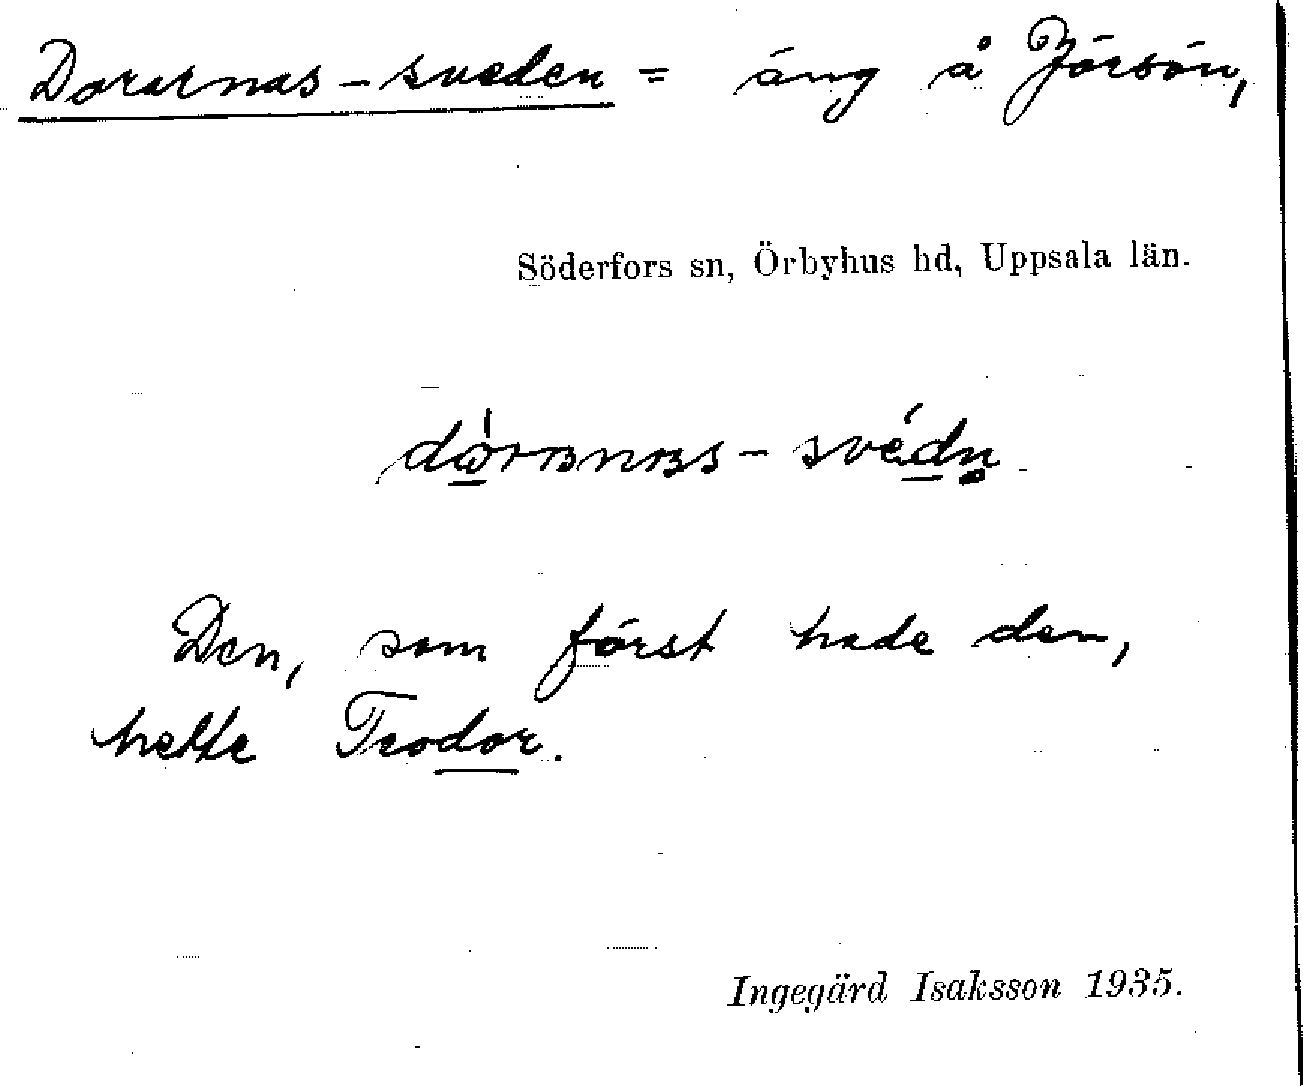 Dorarnas-sveden = äng å Jörsön,
Söderfors sn, Örbyhus hd, Uppsala län.
Den, som först hade den,
hette Teodor.
Ingegärd Isaksson 1935.